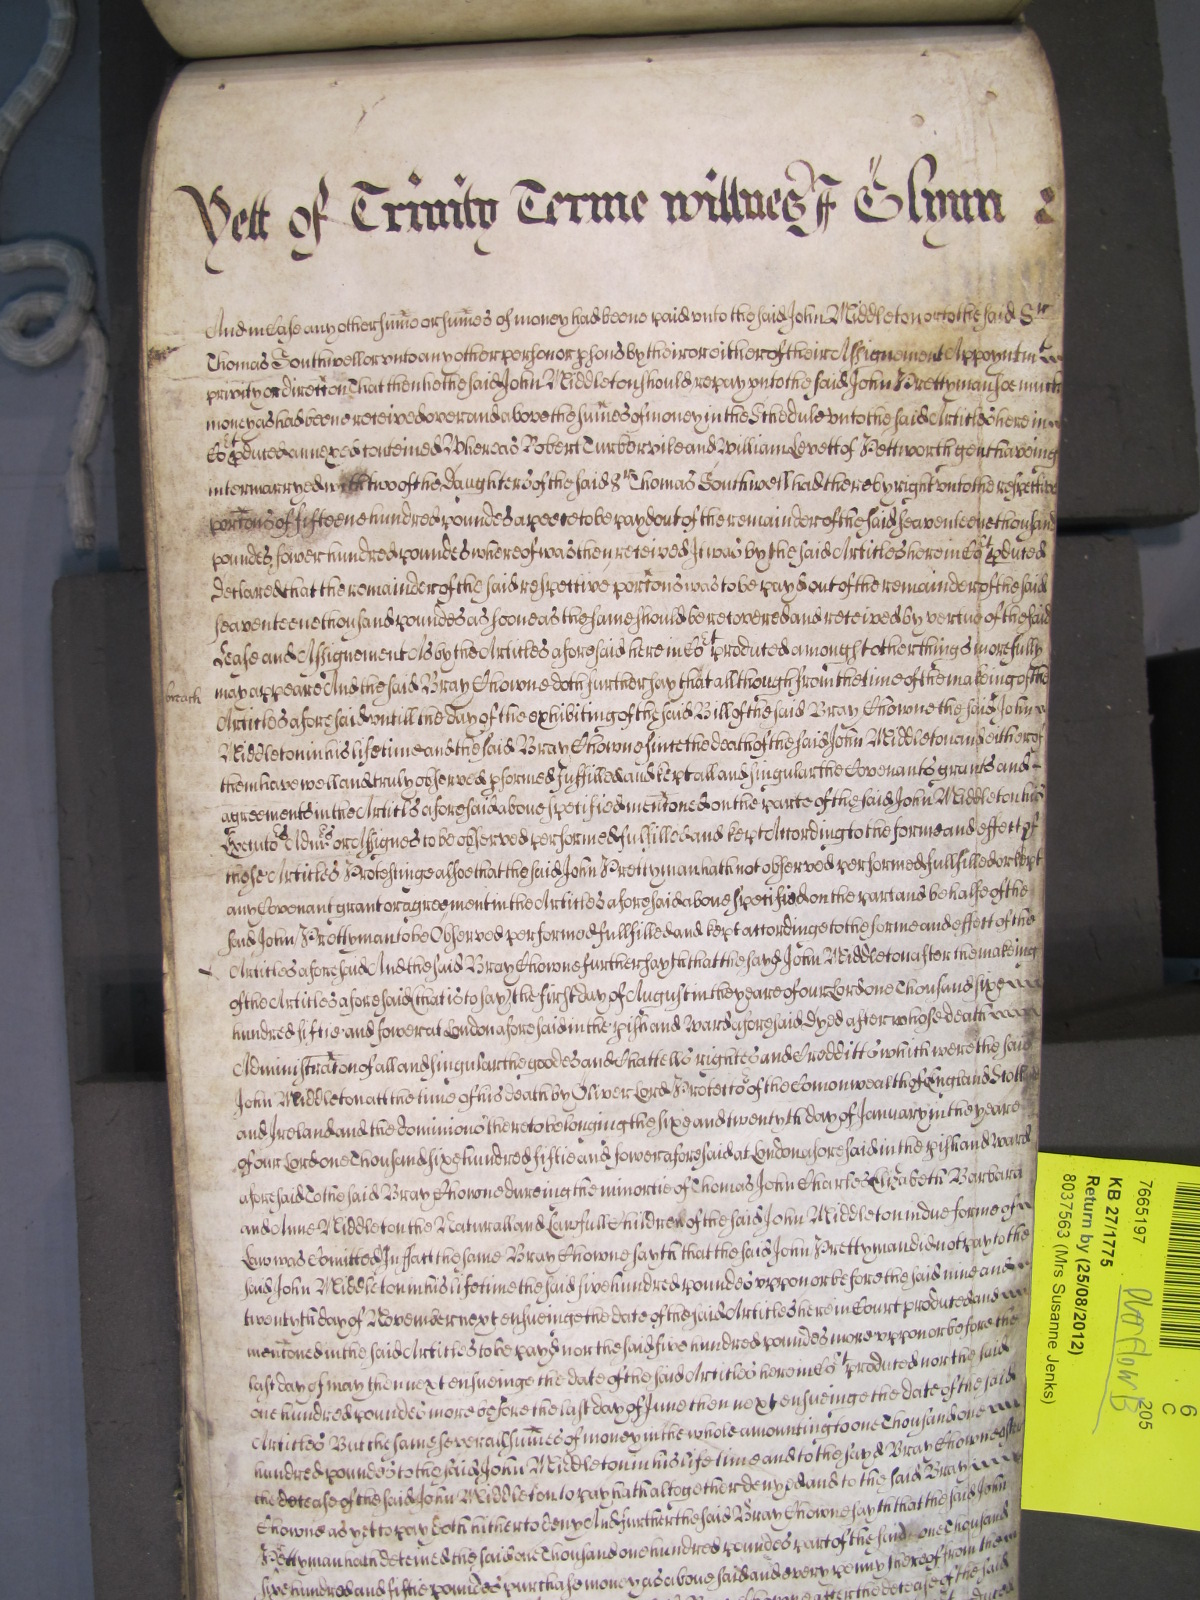 Yett of Trinity Terme willnes ff Glynn
And in Case any other sume or sumes of money had beene paid vnto the said John Middleton or to the said Sr
Thomas Southwell or vnto any other person or psons by their or either of their Assignement Appoyntm
privity or direccon That then he the said John Middleton should repay vnto the said John Prettyman soe much
money as had beene received over and above the sumes of money in the Schedule vnto the said Articles here in
Cort pduced annexed conteined Whereas Robert Turbervile and William Levett of Pettworth gent haveing
intermarryed with two of the daughters of the said Sr Thomas Southwell had thereby right vnto the respective
porcons of fifteene hundred poundes a peece to be payd out of the remainder of the said seaventeene thousand
poundes fower hundred poundes whereof was then received It was by the said Articles here in Cort pduced
declared that the remainder of the said respective porcons was to be payd out of the remainder of the said
seaventeene thousand poundes as soone as the same should be recovered and received by vertue of the said
Lease and Assignement As by the Articles aforesaid here in Cort produced amongst other things more fully
breach
may appeare And the said Bray Chowne doth further say that all though from the time of the making of the
Articles aforesaid vntill the day of the exhibiting of the said Bill of the said Bray Chowne the said John
Middleton in his life time and the said Bray Chowne since the death of the said John Middleton and either of
them have well and truly observed pformed fulfilled and kept all and singular the Covenants grants and
agreements in the Articles aforesaid above specified menconed on the parte of the said John Middleton his
Executors Admrs or Assignes to be observed performed fullfilled and kept According to the forme and effect of
those Articles Protestinge alsoe that the said John Prettyman hath not observed performed fullfilled or kept
any Covenant grant or agreement in the Articles aforesaid above specified on the part and behalfe of the
said John Prettyman to be Observed performed fullfilled and kept accordinge to the forme and effect of the
Articles aforesaid And the said Bray Chowne further sayth that the sayd John Middleton after the makeing
of the Articles aforesaid (that is to say) the first day of August in the yeare of our Lord one Thousand sixe
hundred fiftie and fower at London aforesaid in the pish and Ward aforesaid dyed after whose death
Administracon of all and singular the goodes and Chattells rightes and Creditts which were the said
John Middleton att the time of his death by Oliver Lord Protector of the Comonwealth of England Scotland
and Ireland and the dominions thereto belonging the sixe and twentyth day of January in the yeare
of our Lord one Thousand sixe hundred fiftie and fower aforesaid at London aforesaid in the pish and Ward
aforesaid To the said Bray Chowne dureing the minoritie of Thomas John Charles Elizabeth Barbara
and Anne Middleton the Naturall and Lawfull Children of the said John Middleton in due forme of
Law was Comitted In fact the same Bray Chowne sayth that the said John Prettyman did not pay to the
said John Middleton in his life time the said five hundred poundes vppon or before the said nine and
twentyth day of November next ensueinge the date of the said Articles here in Court produced and
menconed in the said Articles to be payd nor the said five hundred poundes more vppon or before the
last day of may then next ensueinge the date of the said Articles here in Cort produced nor the said
one hundred poundes more before the last day of June then next ensueinge the date of the said
Articles But the same severall sumes of money in the whole amounting to one Thousand one
hundred poundes to the said John Middleton in his life time and to the sayd Bray Chowne after
the decease of the said John Middleton to pay hath altogether denyed and to the said Bray
Chowne as yet to pay doth hitherto deny And further the said Bray Chowne sayth that the said John
Prettyman hath deteined the said one Thousand one hundred poundes part of the said one Thousand
five hundred and fiftie poundes purchase money as above said and every penny thereof from him
after the decease of the said
7665197
KB 27/1775
Return by (25/08/2012)
8037563 (Mrs Susanne Jenks)
205
6
C